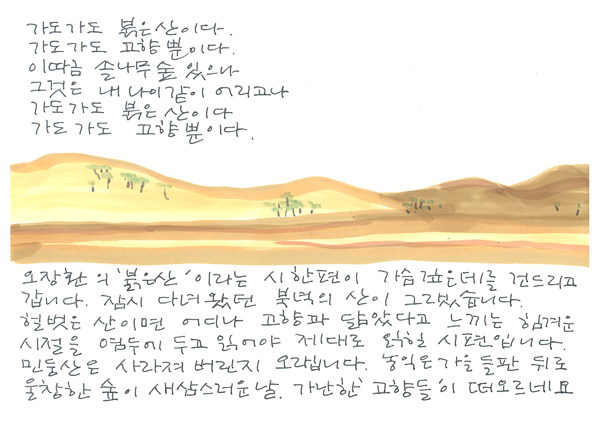 가도가도 붉은산이다.
가도가도 고향뿐이다.
이따금 솔나무숲 있으나
그것은 내 나이같이 어리고나
가도가도 붉은산이다
가도가도 고향뿐이다.
오장환의 '붉은산'이라는 시 한편이 가슴깊은데를 건드리고
갑니다. 잠시 다녀왔던 북녘의 산이 그랬습니다.
헐벗은 산이면 어디나 고향과 닮았다고 느끼는 힘겨운
시절을 염두에 두고 읽어야 제대로 읽힐 시편입니다.
민둥산은 사라져 버린지 오랍니다. 농익은가을 들판 뒤로
울창한 숲이 새삼스러운날. 가난한 '고향들'이 떠오르네요